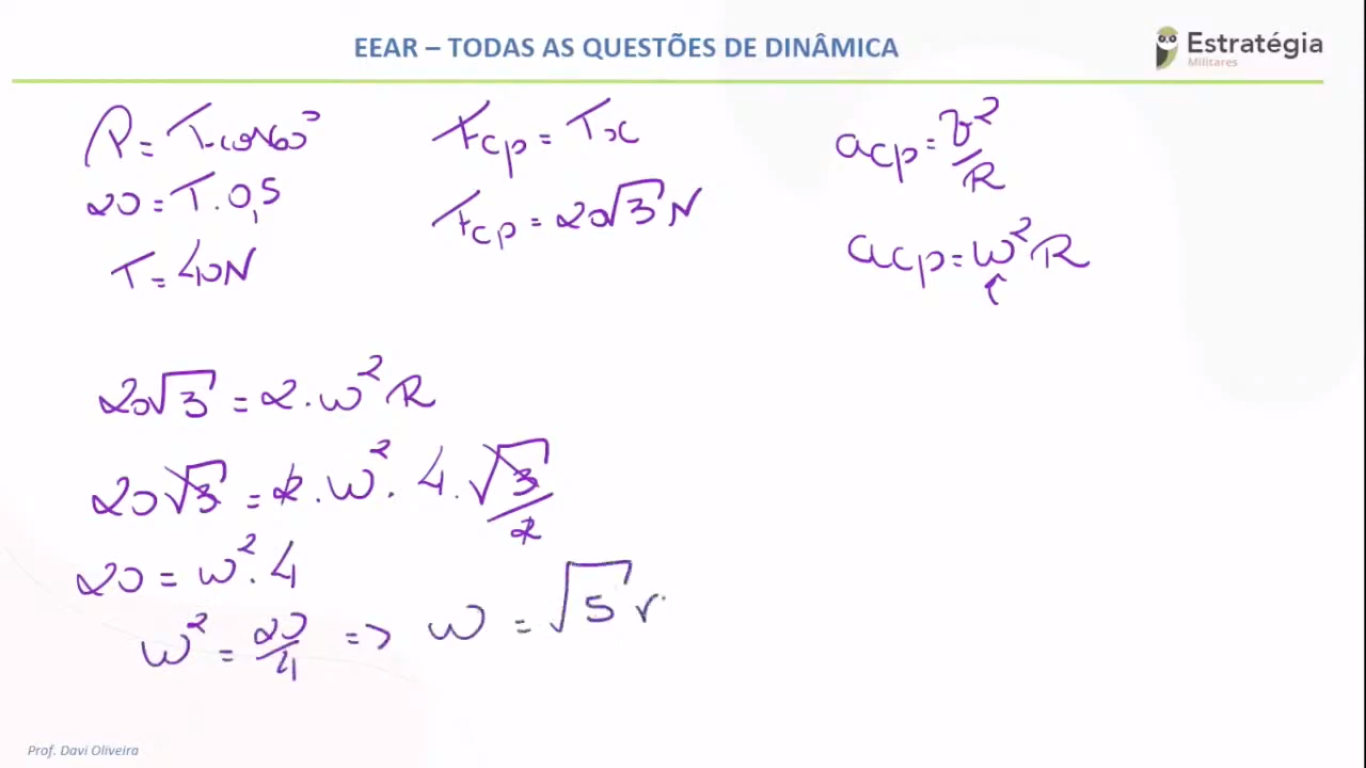 EEAR – TODAS AS QUESTÕES DE DINÂMICA
Estratégia
Militares
P = T.cos60°
20 = T.0,5
T = 40N
Fcp = Tx
Fcp = 20√3 N
acp = v²/R
acp = ω²R
20√3 = 2.ω²R
20√3 = 2.ω².4.√3/2
20 = ω².4
ω² = 20/4 => ω = √5 r
Prof. Davi Oliveira